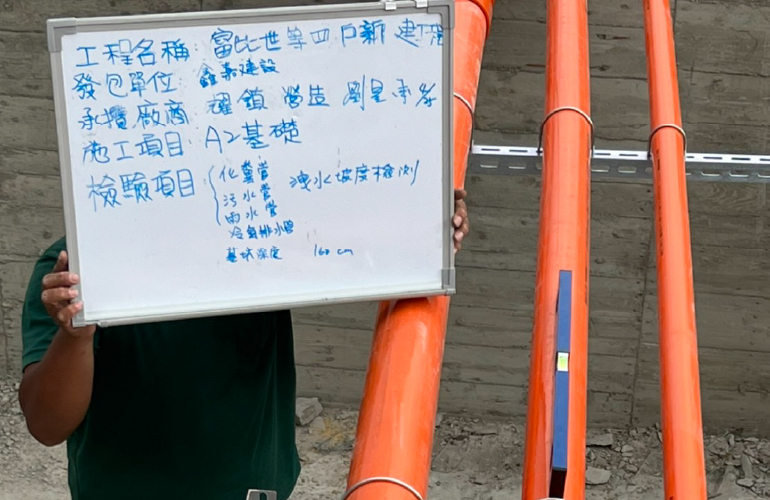 工程名稱：富比世等四戶新建工程
發包單位：鑫嘉建設
承攬廠商：耀鎖營造 劉昱承
施工項目：A2基礎
檢驗項目 化糞管 洩水坡度檢測
污水管
雨水管
冷氣排水管
基坑深度 160 cm